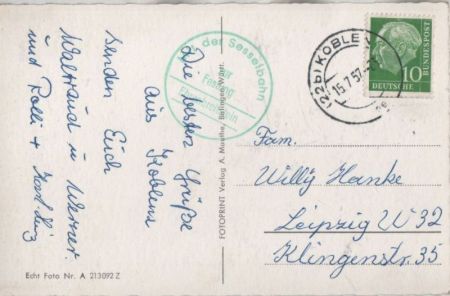 Die besten Grüße
aus Koblenz
senden Euch
Waltraud u. Werner.
und Rolli +
der Sesselbahn
zur
Festung
Ehrenbreitstein
FOTOPRINT Verlag A. Muethe, Balingen/Württ.
(22b) KOBLENZ
15.7.57
DEUTSCHE
BUNDESPOST
10
Fam.
Willy Hanke
Leipzig W 32
Klingenstr. 35
Echt Foto Nr. A 213092 Z